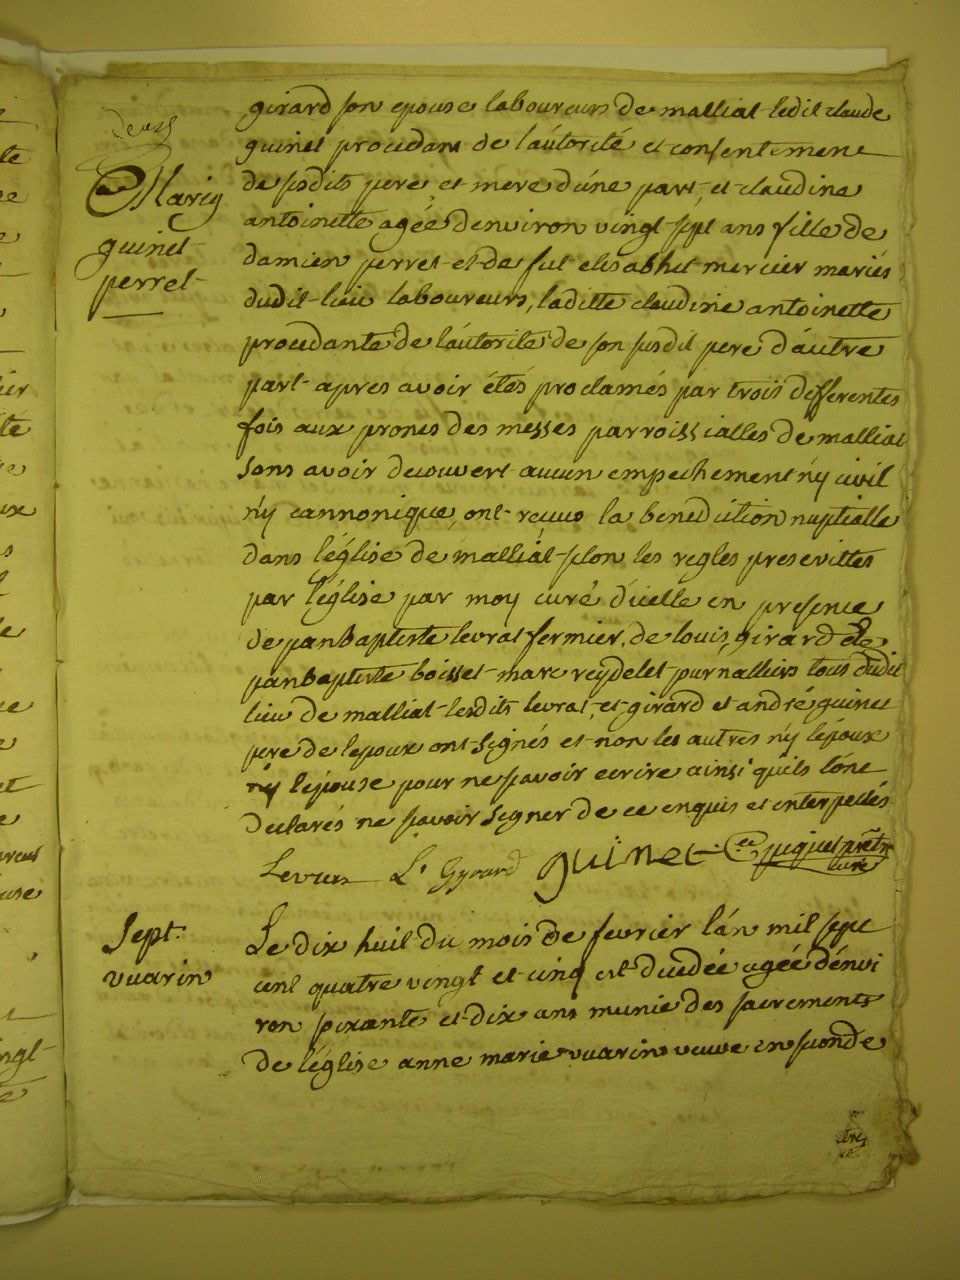 girard son epouse laboureurs de malliat ledit claude
guinet procedant de l'autorité et consentement
de susdits pere et mere d'une part, et claudine
Mariage
antoinette agée d'environ vingt sept ans fille de
guinet
damien perret et de fut elisabhet mercier mariés
perret
dudit lieu laboureurs, laditte claudine antoinette
procedante de l'autorité de son susdit pere d'autre
part apres avoir étés proclamés par trois differentes
fois aux prones des messes parroissialles de malliat
sans avoir decouvert aucun empechement n'y civil
n'y cannonique, ont reçus la benediction nuptialle
dans l'église de malliat selon les regles prescrittes
par l'église par moy curé d'icelle en presence
de jeanbaptiste levrat fermier, de louis girard de
jeanbaptiste boisset marc reydelet journalliers tous dudit
lieu de malliat lesdits levrat, et girard et andré guinet
pere de l'epoux ont signés et non les autres n'y l'époux
n'y l'epouse pour ne sçavoir ecrire ainsi qu'ils l'ont
declarés ne sçavoir signer de ce enquis et interpellés
Levrat L. Gyrard guinet juquet prêtre
curé
Sept.
Le dix huit du mois de fevrier l'an mil sept
vuarin
cent quatre vingt et cinq est decedée agée d'envi
ron soixante et dix ans munie des sacrements
de l'église anne marie vuarin veuve en seconde